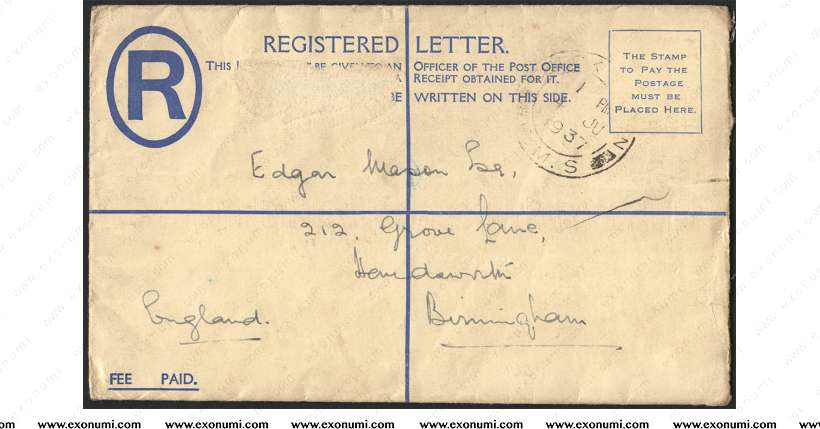 REGISTERED LETTER.
R
THIS BE GIVEN TO AN OFFICER OF THE POST OFFICE
A RECEIPT OBTAINED FOR IT.
BE WRITTEN ON THIS SIDE.
THE STAMP
TO PAY THE
POSTAGE
MUST BE
PLACED HERE.
1 PM
JU
1937
M.S
Edgar Mason Esq.,
212, Grove Lane,
Handsworth
England.
Birmingham
FEE PAID.
www.exonumi.com www.exonumi.com www.exonumi.com www.exonumi.com www.exonumi.com www.exonumi.com